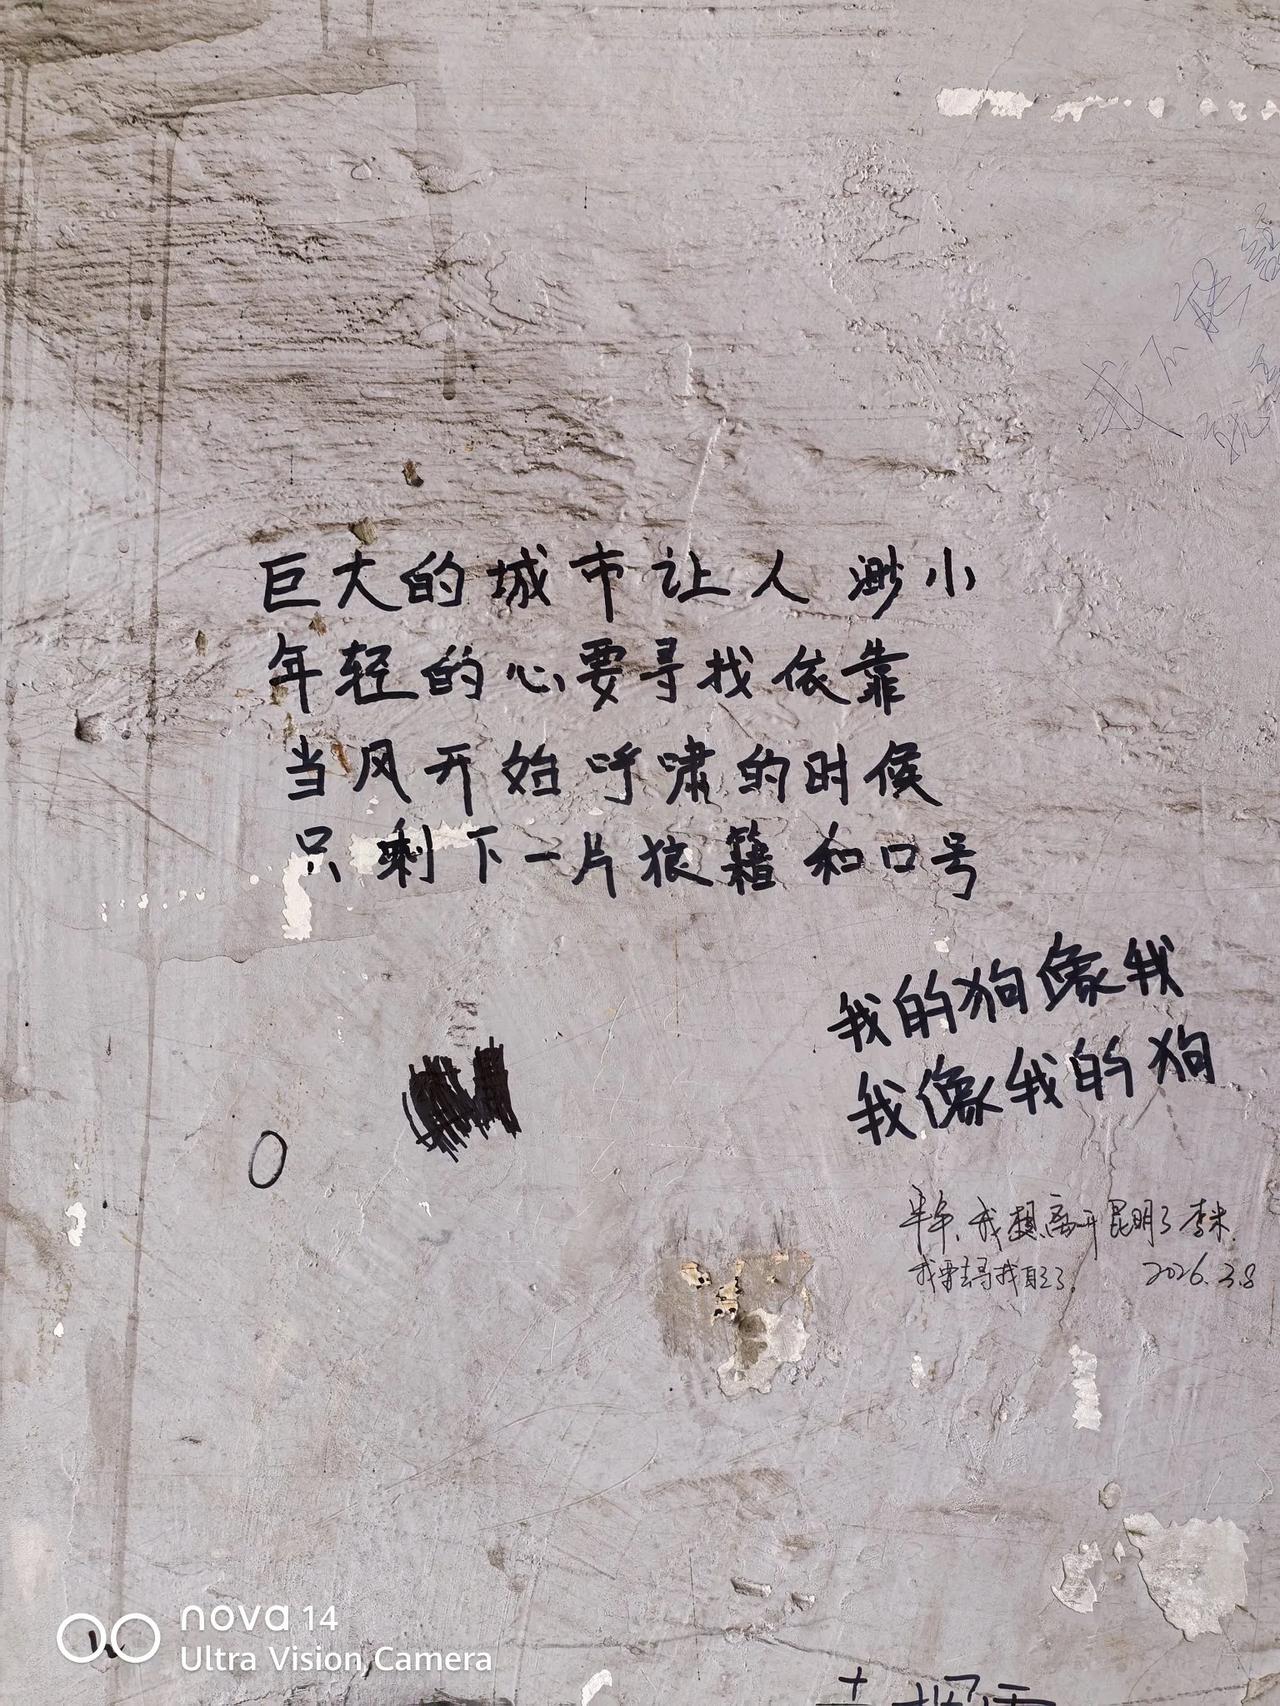 我不能
巨大的城市让人渺小
年轻的心要寻找依靠
当风开始呼啸的时候
只剩下一片狼籍和口号
我的狗像我
我像我的狗
我想离开昆明了李米.
我要去寻找自己了。 2026.3.8
nova 14
Ultra Vision Camera